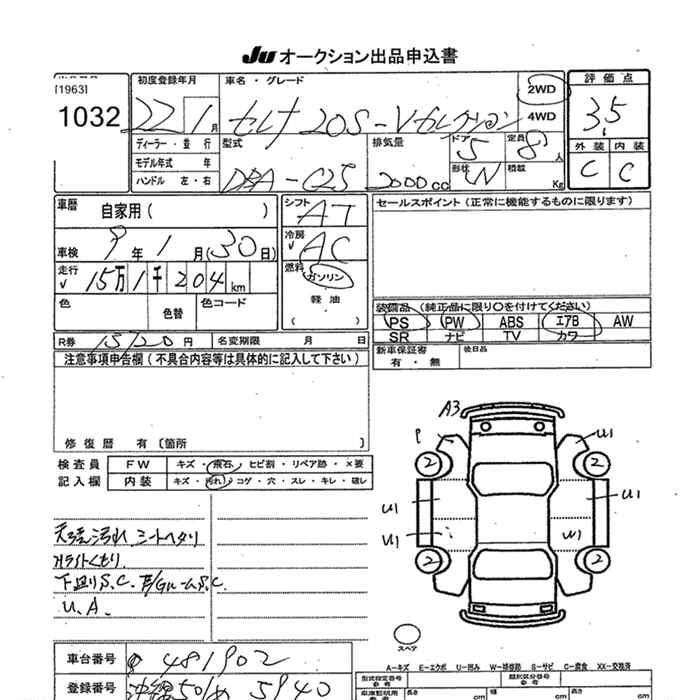 JU オークション出品申込書
[1963]
1032
初度登録年月
22 1 月
ディーラー・並行
モデル年式 年
ハンドル 左・右
車名・グレード
セレナ 20S-Vセレクション
2WD
4WD
型式
DBA-C25
排気量
2000cc
ドア 5
定員 8人
形状 W
積載 Kg
評価点
3.5
外装 内装
C C
車歴
自家用( )
車検 9年1月(30日)
走行
15万1千204km
色
色替
色コード
シフト AT
冷房 AC
燃料
ガソリン
軽油
( )
セールスポイント(正常に機能するものに限ります)
装備品(純正品に限り○を付けてください)
PS PW ABS エアB AW
SR ナビ TV カワ
R券 15720円
名変期限 月 日
新車保証書
有・無
後日品
注意事項申告欄(不具合内容等は具体的に記入して下さい)
修復歴 有〔箇所 〕
検査員
記入欄
FW キズ・飛石・ヒビ割・リペア跡・×要
内装 キズ・汚れ・コゲ・穴・スレ・キレ・破レ
天張汚れ.シートヘタリ
ライトくもり.
下廻りS.C. E/GルームS.C.
U.A.
A3
P
U1
2
2
U1
U1
U1
W1
2
2
スペア
車台番号 481902
登録番号 沖縄501 5940
A-キズ E-エクボ U-凹み W-補修跡 S-サビ C-腐食 XX-交換済
型式指定番号
類別区分番号
長さ cm
幅 cm
高さ cm